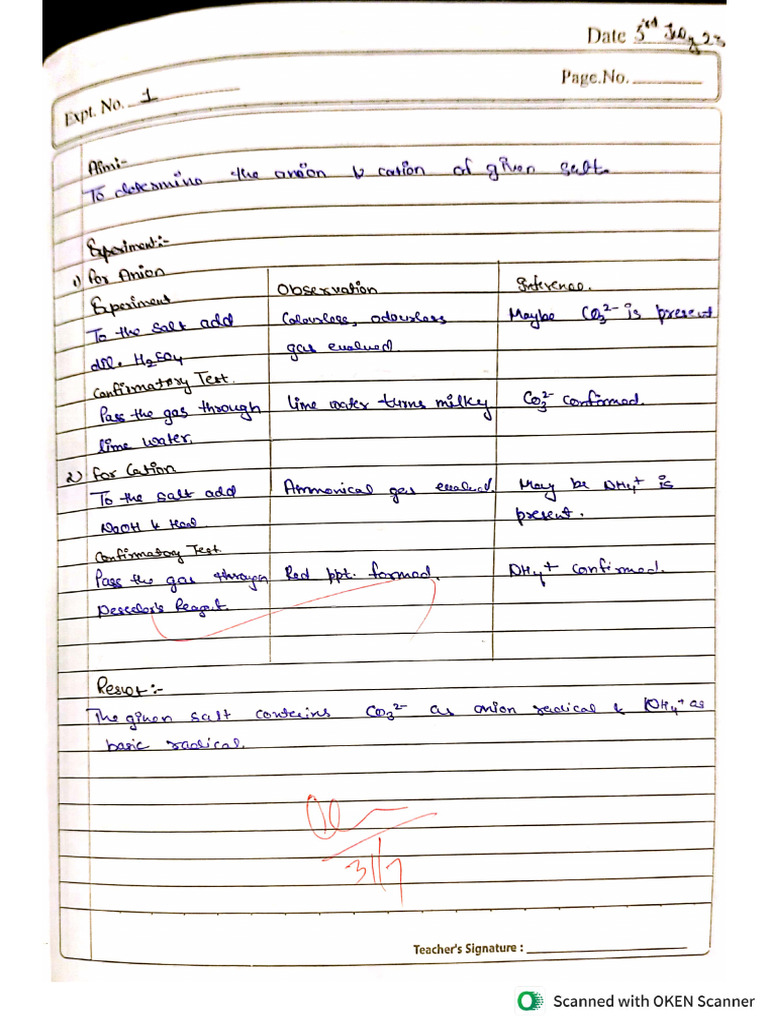 Date 3rd July 23
Page.No.
Expt. No. 1
Aim:-
To determine the anion & cation of given salt.
Experiment:-
1) For Anion
Experiment Observation Inference.
To the salt add Colourless, odourless Maybe CO₃²⁻ is present
dil. H₂SO₄ gas evolved.
Confirmatory Test.
Pass the gas through lime water turns milky CO₃²⁻ confirmed.
lime water.
2) For Cation
To the salt add Ammonical gas evolved. May be NH₄⁺ is
NaOH & Heat present.
Confirmatory Test.
Pass the gas through Red ppt. formed. NH₄⁺ confirmed.
Nesselor's Reagent
Result:-
The given salt contains CO₃²⁻ as anion radical & NH₄⁺ as
basic radical.
31/7
Teacher's Signature :
Scanned with OKEN Scanner